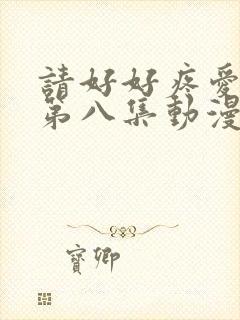 請好好疼愛
第八集動漫
寶卿